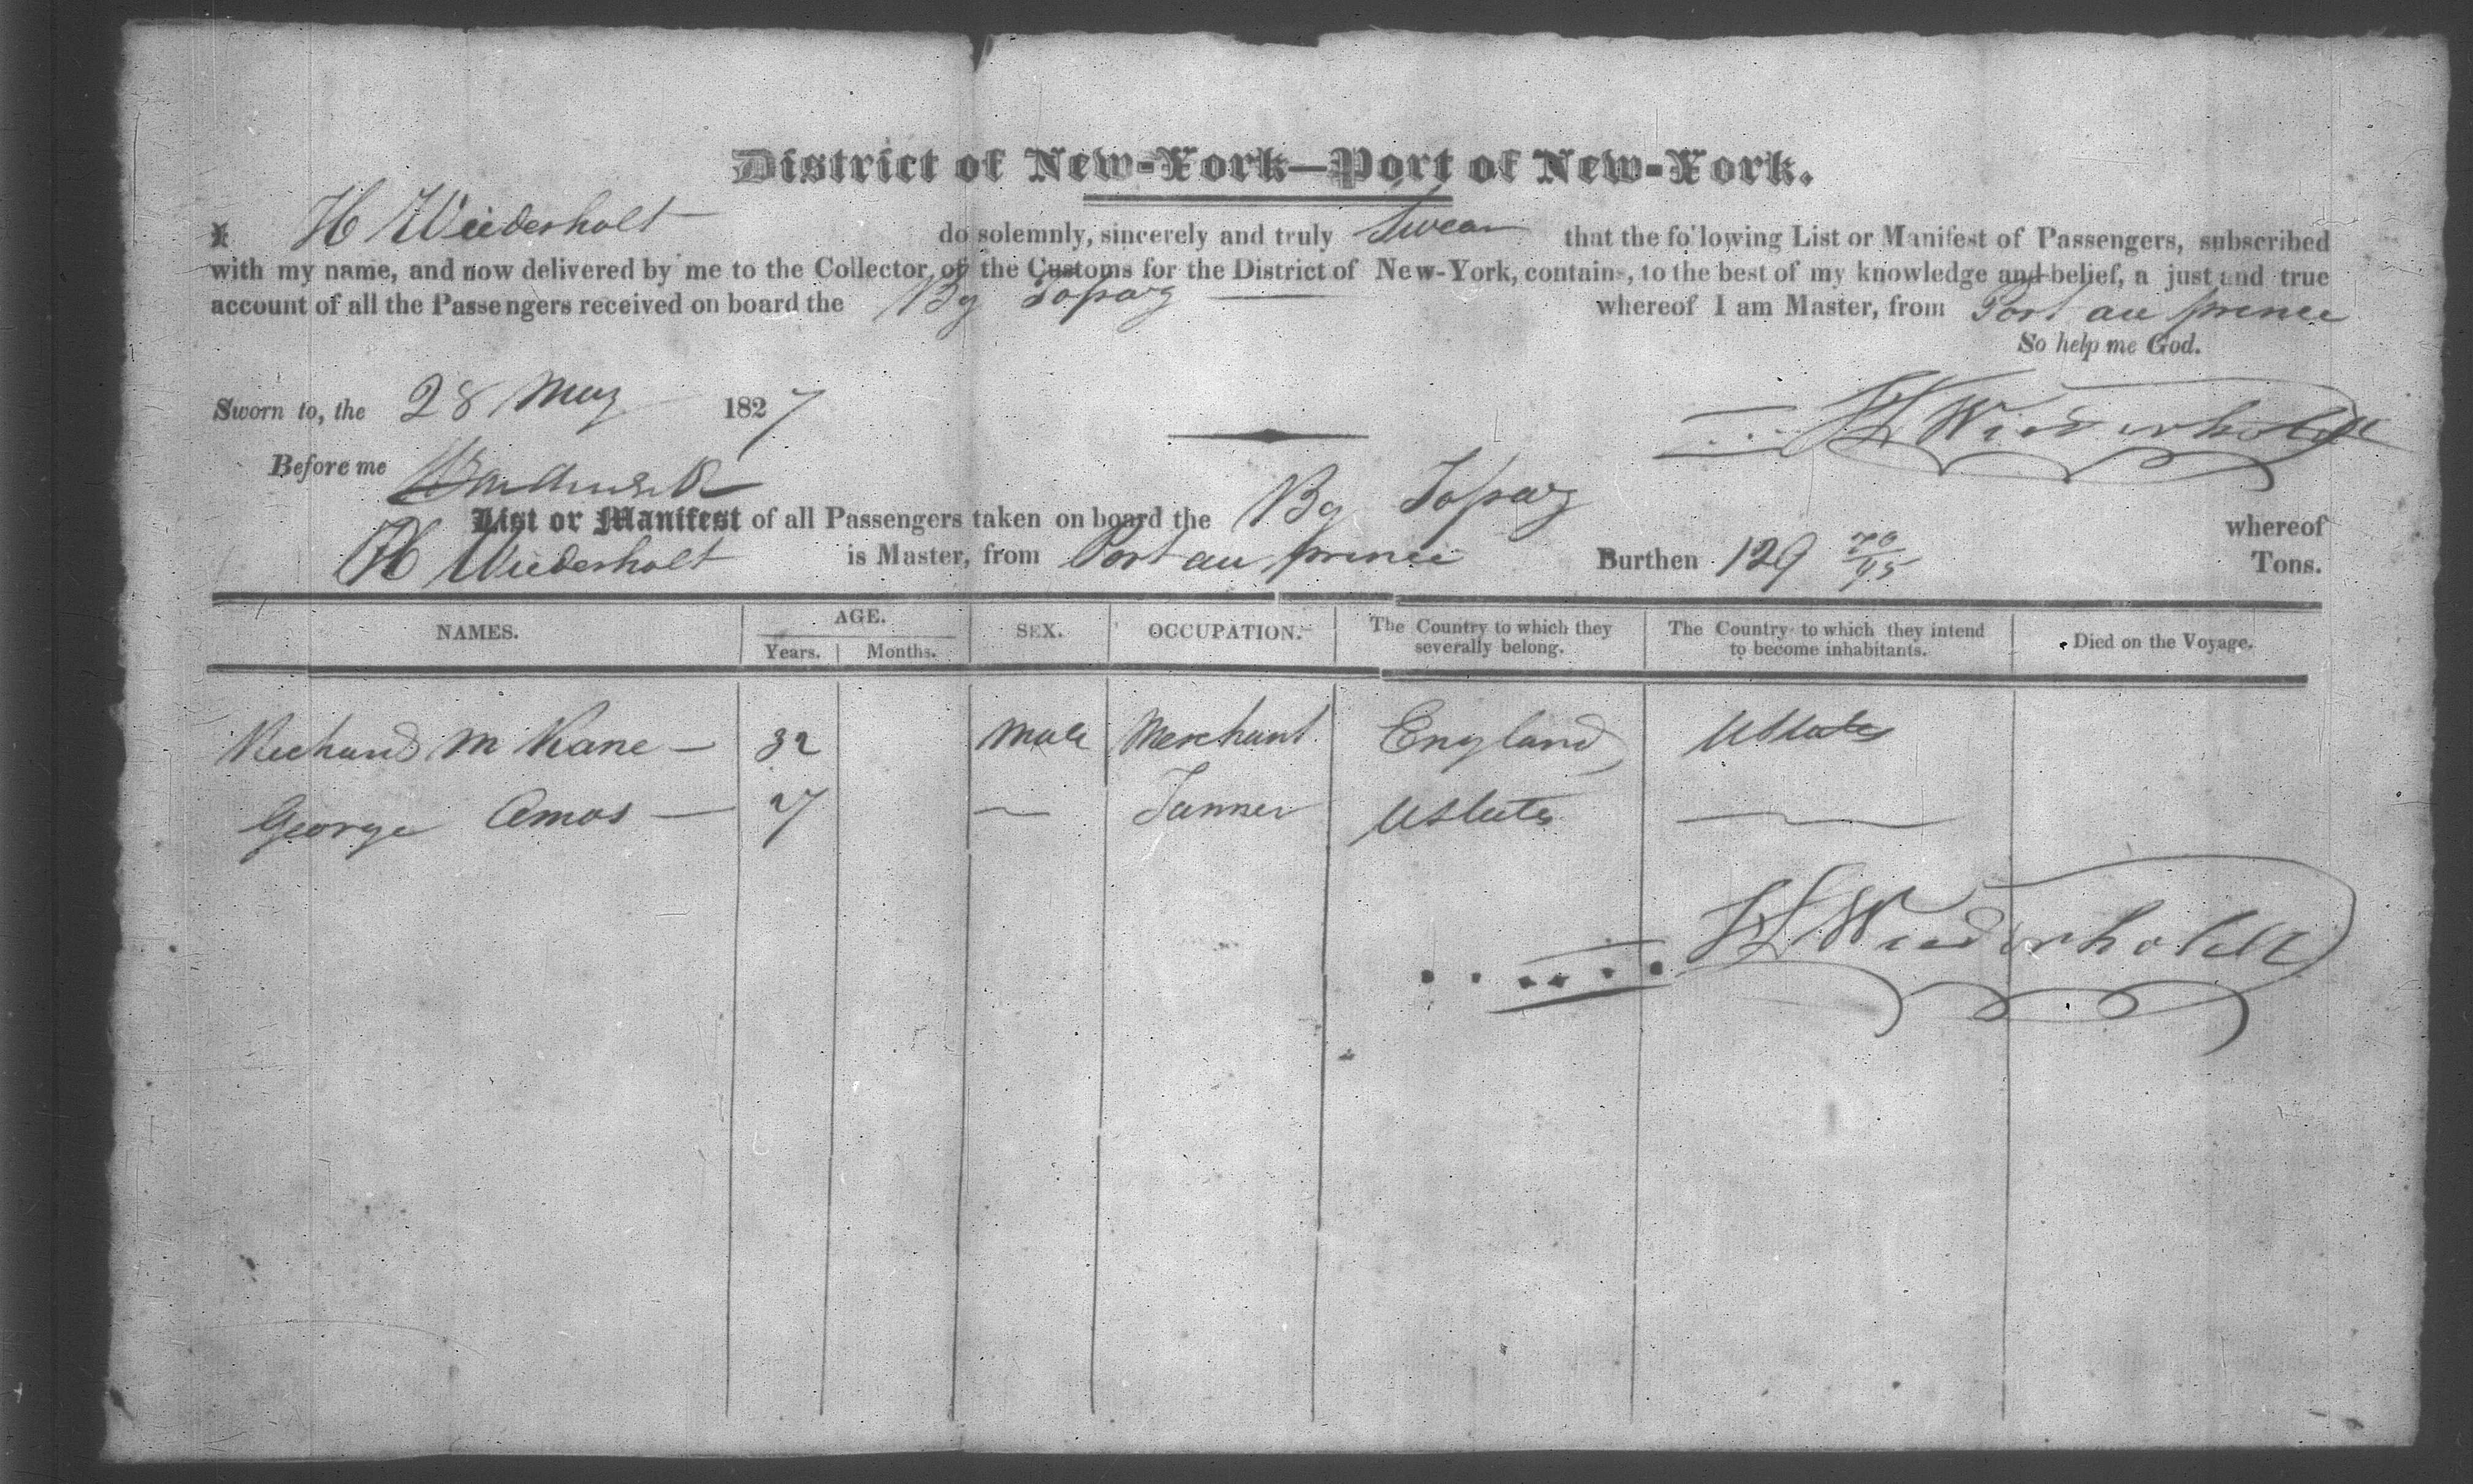 District of New-York—Port of New-York.
I H Wiederholt do solemnly, sincerely and truly Swear that the following List or Manifest of Passengers, subscribed
with my name, and now delivered by me to the Collector of the Customs for the District of New-York, contains, to the best of my knowledge and belief, a just and true
account of all the Passengers received on board the Bg Topaz whereof I am Master, from Port au prince
So help me God.
Sworn to, the 28 May 1827
H Wiederholdt
Before me
List or Manifest of all Passengers taken on board the Bg Topaz whereof
H Wiederholt is Master, from Port au prince Burthen 129 70/95 Tons.
NAMES. AGE. SEX. OCCUPATION. The Country to which they severally belong. The Country to which they intend to become inhabitants. Died on the Voyage.
Years. Months.
Richard M Kane — 32 Male Merchant England UStates
George Amos — 27 — Tanner UStates —
H Wiederholdt